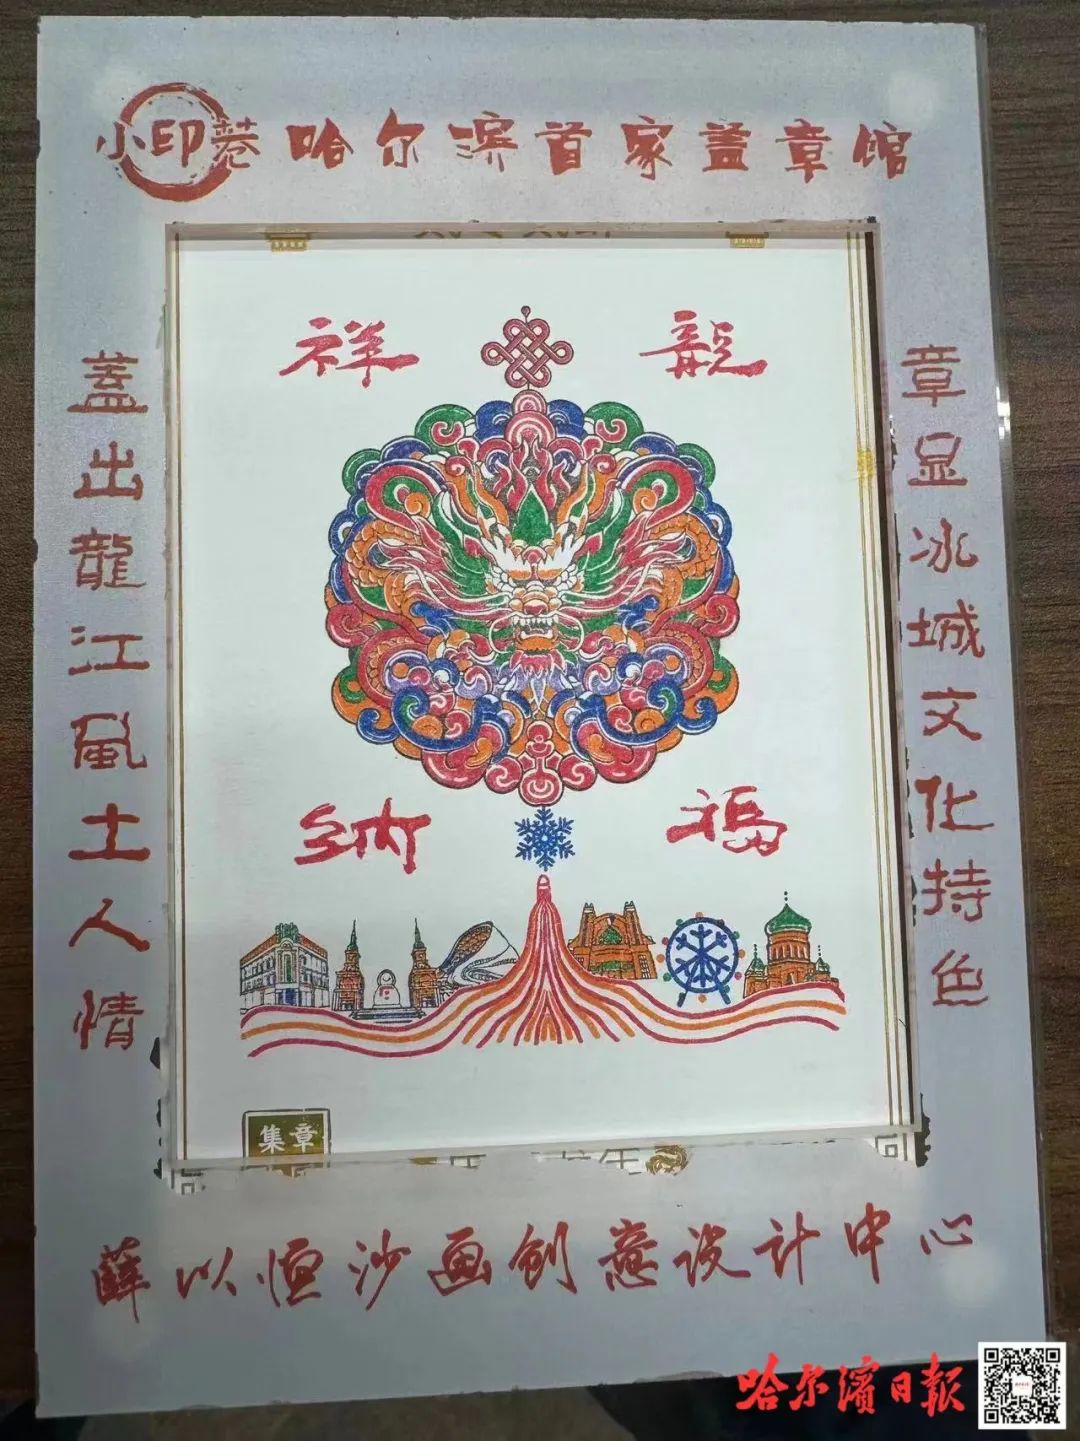 小印巷 哈尔滨首家盖章馆
祥 龍
纳 福
蓋出龍江風土人情
章显冰城文化特色
集章
薛以恒沙画创意设计中心
哈尔滨日报